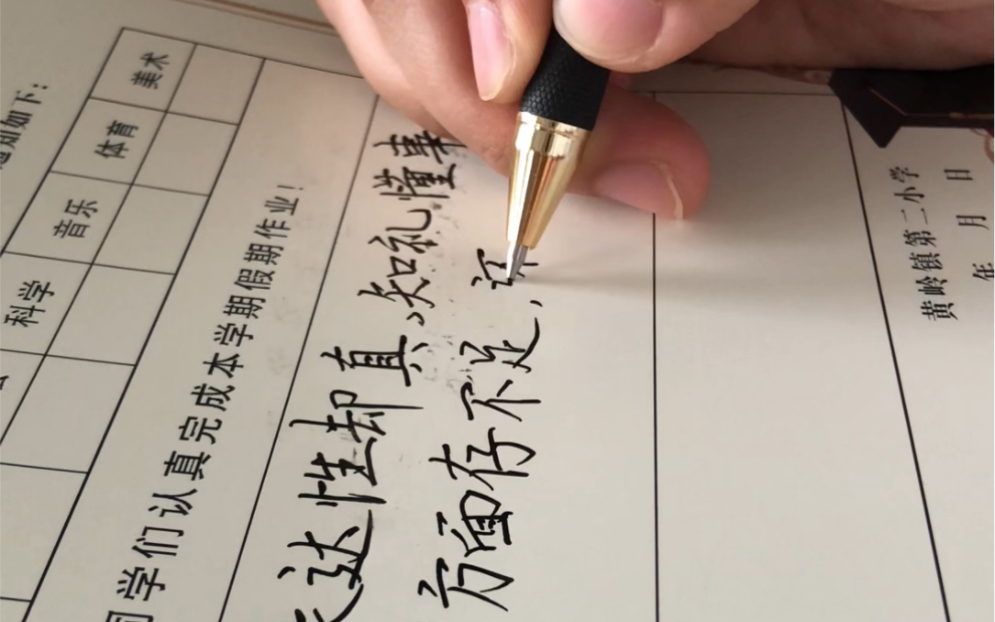 知如下：
科学 音乐 体育 美术
同学们认真完成本学期假期作业！
达性却真。知礼懂事
方面存不足，
黄岭镇第二小学
年 月 日